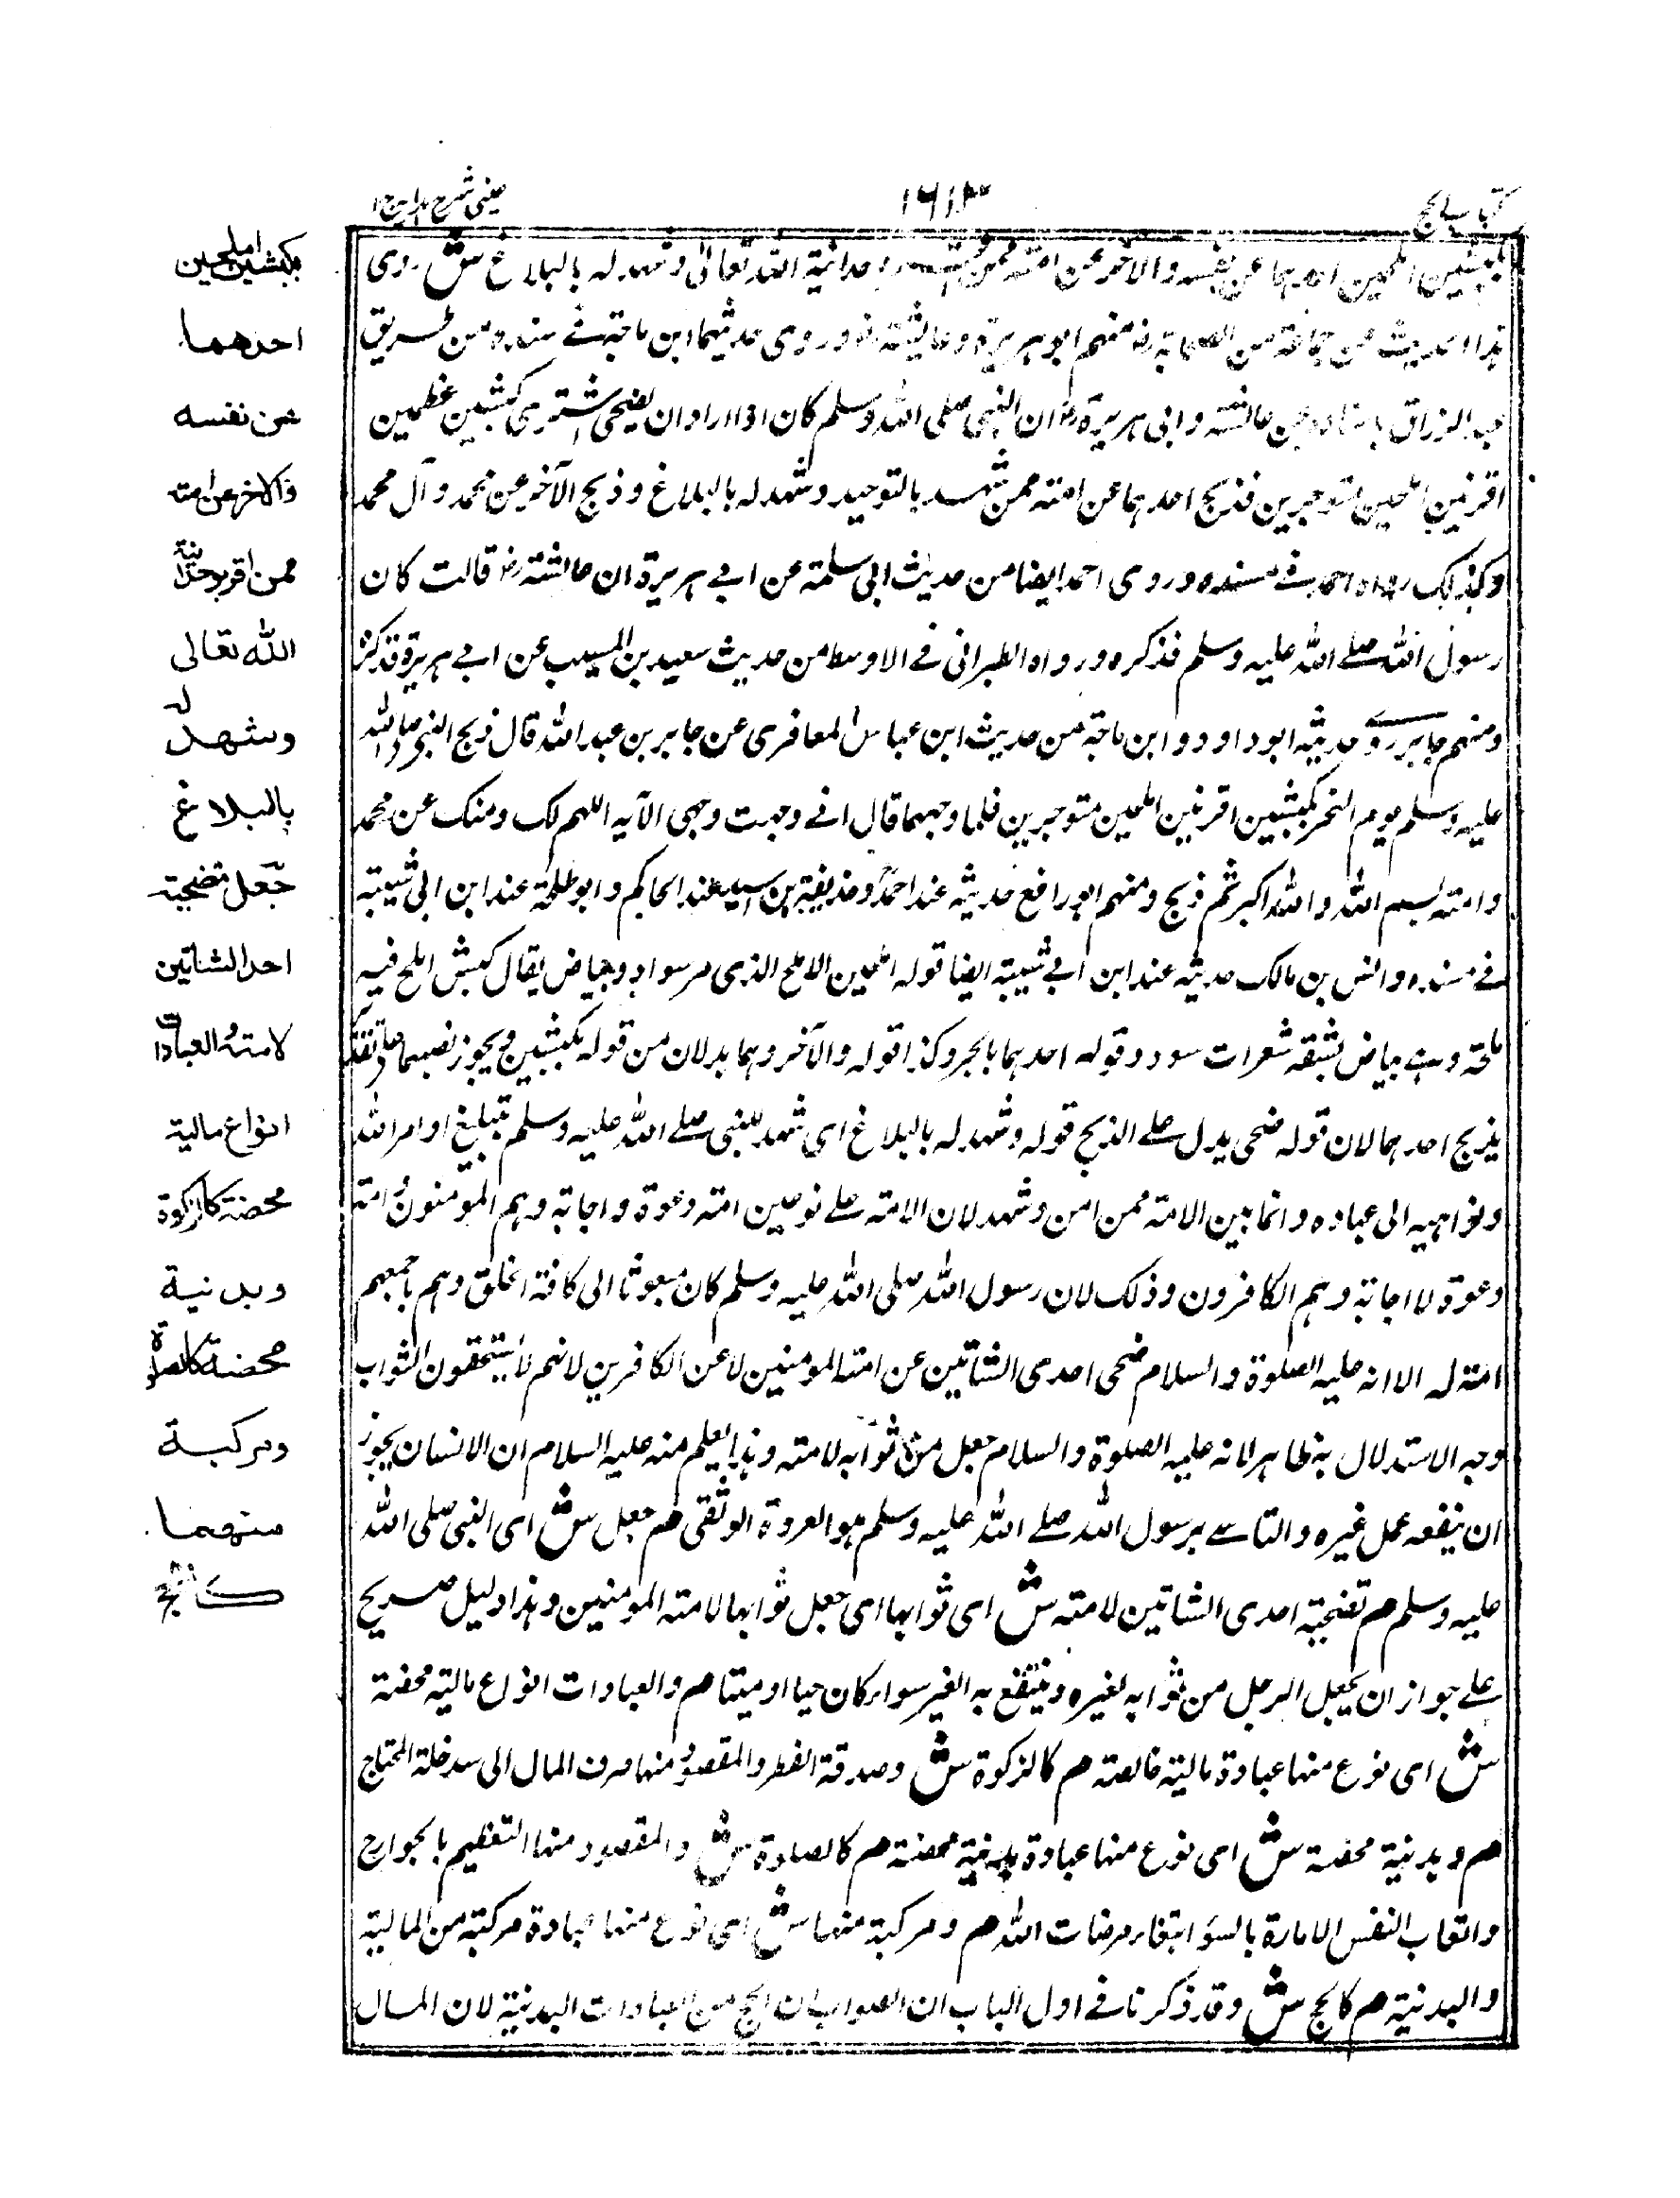 كتاب الحج
١٦١٣
عيني شرح هداية ج١
بكبشين املحين احدهما عن نفسه والاخر عن امته ممن اقر بوحدانية الله تعالى وشهد له بالبلاغ ش روى
هذا الحديث عن جماعة من الصحابة رض منهم ابو هريرة وعائشة رض وروى حديثهما ابن ماجة في سننه من طريق
عبد الرزاق باسناده عن عائشة وابى هريرة رض ان النبى صلى الله وسلم كان اذا اراد ان يضحى اشترى كبشين عظيمين
اقرنين املحين متوجبرين فذبح احدهما عن امته ممن شهد بالتوحيد وشهد له بالبلاغ وذبح الآخر عن محمد وآل محمد
وكذلك رواه احمد في مسنده وروى احمد ايضا من حديث ابى سلمة عن ابي هريرة ان عائشة رض قالت كان
رسول الله صلے الله عليه وسلم فذكره ورواه الطبرانى في الاوسط من حديث سعيد بن المسيب عن ابي هريرة قد كثر
ومنهم جابر رض حديثه ابو داود وابن ماجة من حديث ابن عباس المعافرى عن جابر بن عبد الله قال ذبح النبى صلى الله
عليه وسلم يوم النحر بكبشين اقرنين املحين متوجبرين فلما وجههما قال انے وجهت وجهى الآيه اللهم لك ومنك عن محمد
وامته بسم الله والله اكبر ثم ذبح ومنهم ابو رافع حديثه عند احمد وحذيفة بن اسيد عند الحاكم وابو طلحة عند ابن ابى شيبة
في مسنده وانس بن مالك حديثه عند ابن ابے شيبة ايضا قوله املحين الاملح الذى مر سواد وبياض يقال كبش املح فيه
ملحة وهے بياض يشقه شعرات سود وقوله احدهما بالجر وكذا قوله والآخر وهما بدلان من قوله بكبشين ويجوز نصبهما على تقدير
يذبح احدهما لان قوله ضحى يدل على الذبح قوله وشهد له بالبلاغ اى شهد للنبى صلے الله عليه وسلم بتبليغ اوامر الله
ونواهيه الى عباده وانما بين الامة ممن امن وشهد لان الامة على نوعين امة دعوة واجابة وهم المومنون وامة
دعوة لا اجابة وهم الكافرون وذلك لان رسول الله صلى الله عليه وسلم كان مبعوثا الى كافة الخلق وهم باجمعهم
امة له الا انه عليه الصلوة والسلام ضحى احدى الشاتين عن امته المومنين لا عن الكافرين لانهم لا يستحقون الثواب
وجه الاستدلال به ظاهر لانه عليه الصلوة والسلام جعل من ثوابه لامته وهذا يعلم منه عليه السلام ان الانسان يجوز
ان ينفعه عمل غيره والتاسے برسول الله صلے الله عليه وسلم هو العروة الوثقى م جعل ش اى النبى صلى الله
عليه وسلم م تضحية احدى الشاتين لامته ش اى ثوابها اى جعل ثوابها لامته المومنين وهذا دليل صريح
على جواز ان يجعل الرجل من ثوابه لغيره وينتفع به الغير سواء كان حيا او ميتا م والعبادات انواع مالية محضة
ش اى نوع منها عبادة مالية خالصة م كالزكوة ش وصدقة الفطر والمقصود منها صرف المال الى سد خلة المحتاج
م وبدنية محضة ش اى نوع منها عبادة بدنية محضة م كالصلوة ش والمقصود منها التعظيم بالجوارح
واتعاب النفس الامارة بالسوء ابتغاء مرضات الله م ومركبة منهما ش اى نوع منها عبادة مركبة من المالية
والبدنية م كالحج ش وقد ذكرنا في اول الباب ان الصواب ان الحج من العبادات البدنية لان المال
بكبشين املحين
احدهما
عن نفسه
والاخر عن امته
ممن اقر بوحدانية
الله تعالى
وشهد له
بالبلاغ
جعل تضحية
احد الشاتين
لامته والعبادات
انواع مالية
محضة كالزكوة
وبدنية
محضة كالصلوة
ومركبة
منهما
كالحج